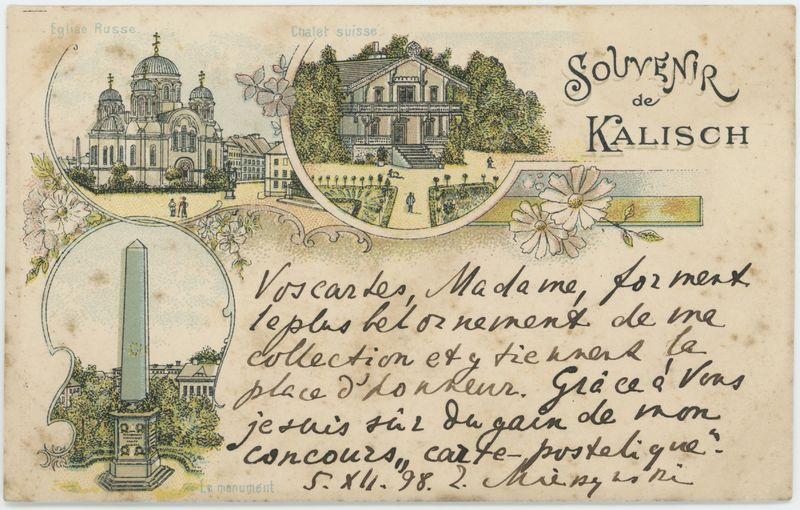 Eglise Russe.
Chalet suisse.
SOUVENIR
de
KALISCH
Vos cartes, Madame, forment
le plus bel ornement de ma
collection et y tiennent la
place d'honneur. Grâce à Vous
je suis sûr du gain de mon
concours „carte-postelique".
5. XII. 98.
Le monument.